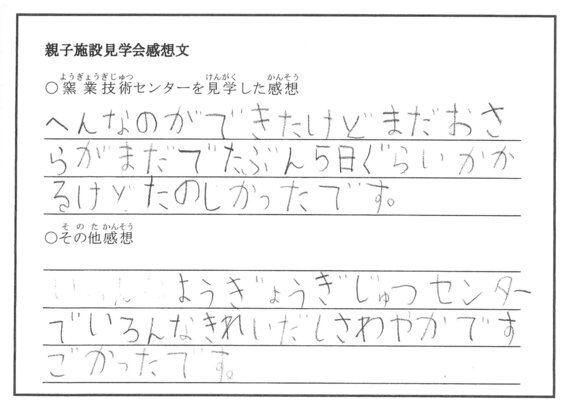 親子施設見学会感想文
ようぎょうぎじゅつ けんがく かんそう
○窯業技術センターを見学した感想
へんなのができたけどまだおさ
らがまだでたぶん5日ぐらいかか
るけどたのしかったです。
そのたかんそう
○その他感想
ようぎょうぎじゅつセンター
でいろんなきれいだしさわやかです
ごかったです。